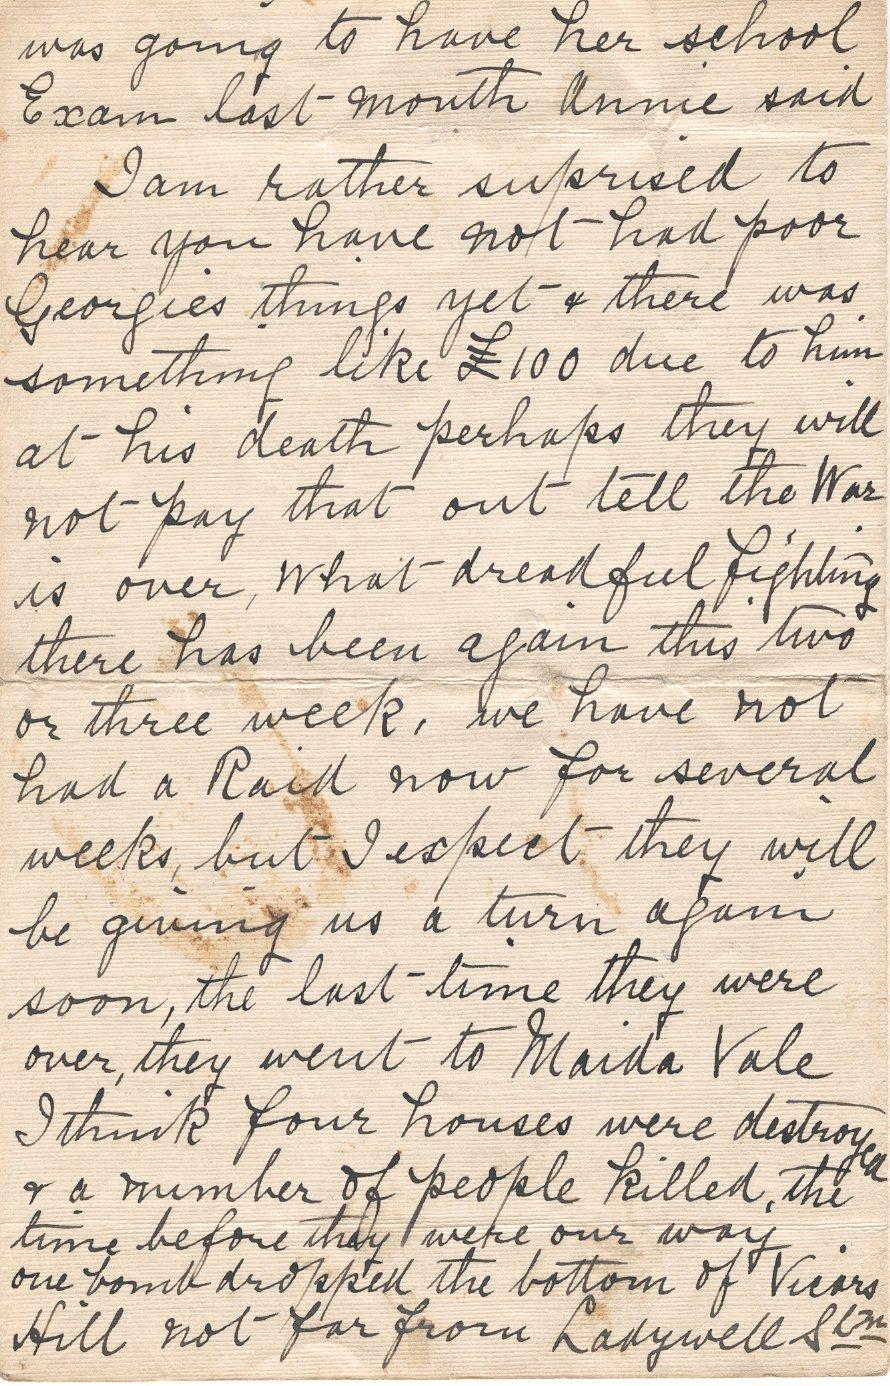 was going to have her school
Exam last month Annie said
I am rather suprised to
hear you have not had poor
Georgies things yet & there was
something like £100 due to him
at his death perhaps they will
not pay that out tell the War
is over, What dreadful fighting
there has been again this two
or three week, we have not
had a Raid now for several
weeks, but I expect they will
be giving us a turn again
soon, the last time they were
over, they went to Maida Vale
I think four houses were destroyed
& a number of people killed, the
time before they were our way
one bomb dropped the bottom of Vicars
Hill not far from Ladywell Stn